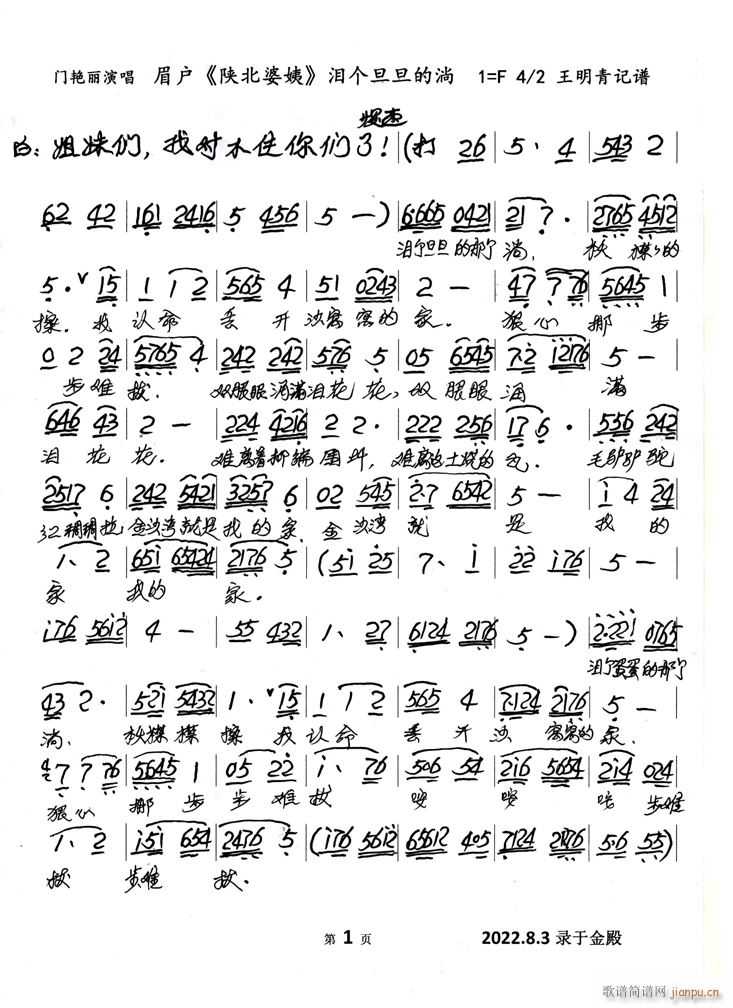 门艳丽演唱 眉户《陕北婆姨》泪个旦旦的淌 1=F 4/2 王明青记谱
慢速
白：姐妹们，我对不住你们了！（打 26 | 5· 4 | 543 2 |
62 42 | 161 2416 | 5 456 | 5 —） | 6·665 0421 | 21 7· | 2765 4512 |
泪个旦旦的那个 淌， 秋 的
5·ᵛ 15 | 1 1 2 | 565 4 | 51 0243 | 2 — | 47 7 76 | 5645 1 |
擦． 我 认命 丢 开 沙窝窝的 家． 狠心 挪 步
0 2 24 | 5765 4 | 242 242 | 576 5 | 05 6545 | 7·2 i276 | 5 — |
步难 拔． 双眼眼滴满泪花 花， 双 眼眼 滴 满
646 43 | 2 — | 224 4216 | 2 2· | 222 256 | 17 6· | 556 242 |
泪 花 花． 难离着柳编 囤 难离这土烧的 瓦． 毛驴驴驼
2517 6 | 242 5421 | 3257 6 | 02 545 | 2·7 6542 | 5 — | i 4 24 |
金沙湾就是 我 的 家． 金 沙湾 就 是 我 的
1· 2 | 65i 65424 | 2176 5 | （5i 25 | 7· i | 22 i76 | 5 — |
家 我的 家．
i76 56i2 | 4 — | 55 432 | 1· 27 | 6124 2176 | 5 —） | 2·221 0765 |
泪个蛋蛋的那个
43 2· | 521 5432 | 1·ᵛ 15 | 1 1 2 | 565 4 | 7·124 2176 | 5 — |
淌． 擦 我 认命 丢 开 沙 窝窝的 家．
47 7 76 | 5645 1 | 05 22 | i· 76 | 506 54 | 2i6 5654 | 2i4 024 |
狠心 挪 步 步 难 拔 步难
1· 2 | i5i 654 | 2476 5 | （i76 5612 | 65612 405 | 7124 2176 | 5·6 55） |
拔 步难 拔．
第 1 页 2022.8.3 录于金殿
歌谱简谱网
www.jianpu.cn